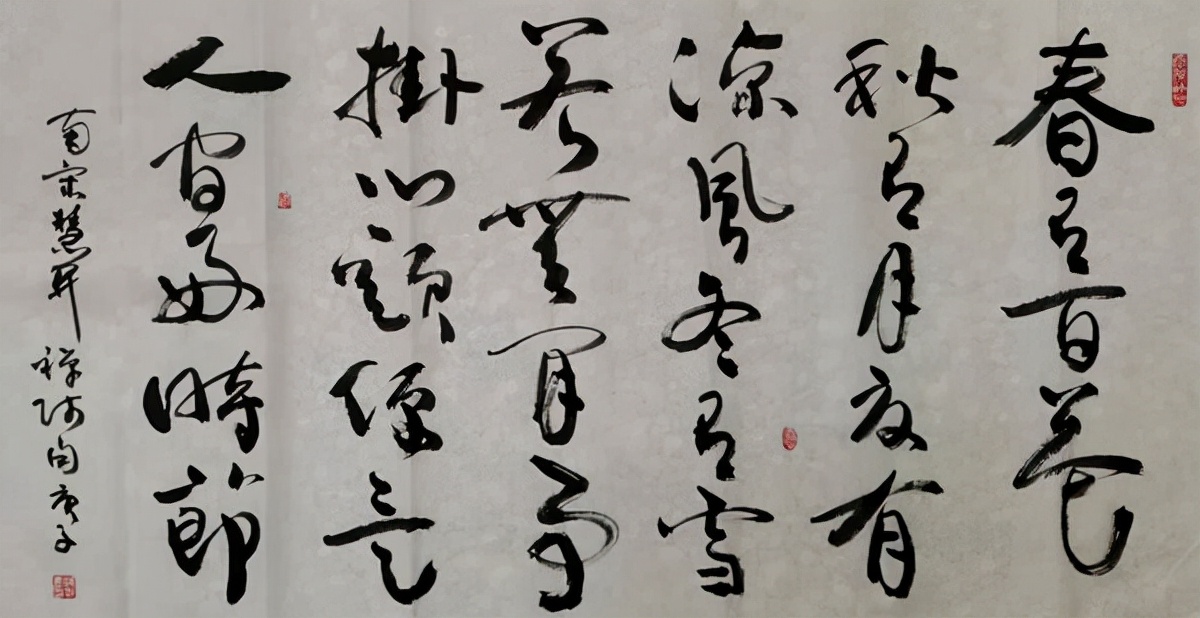 春有百花
秋有月夏有
涼風冬有雪
若無閒事
掛心頭便是
人間好時節
南宋慧開禪師句庚子